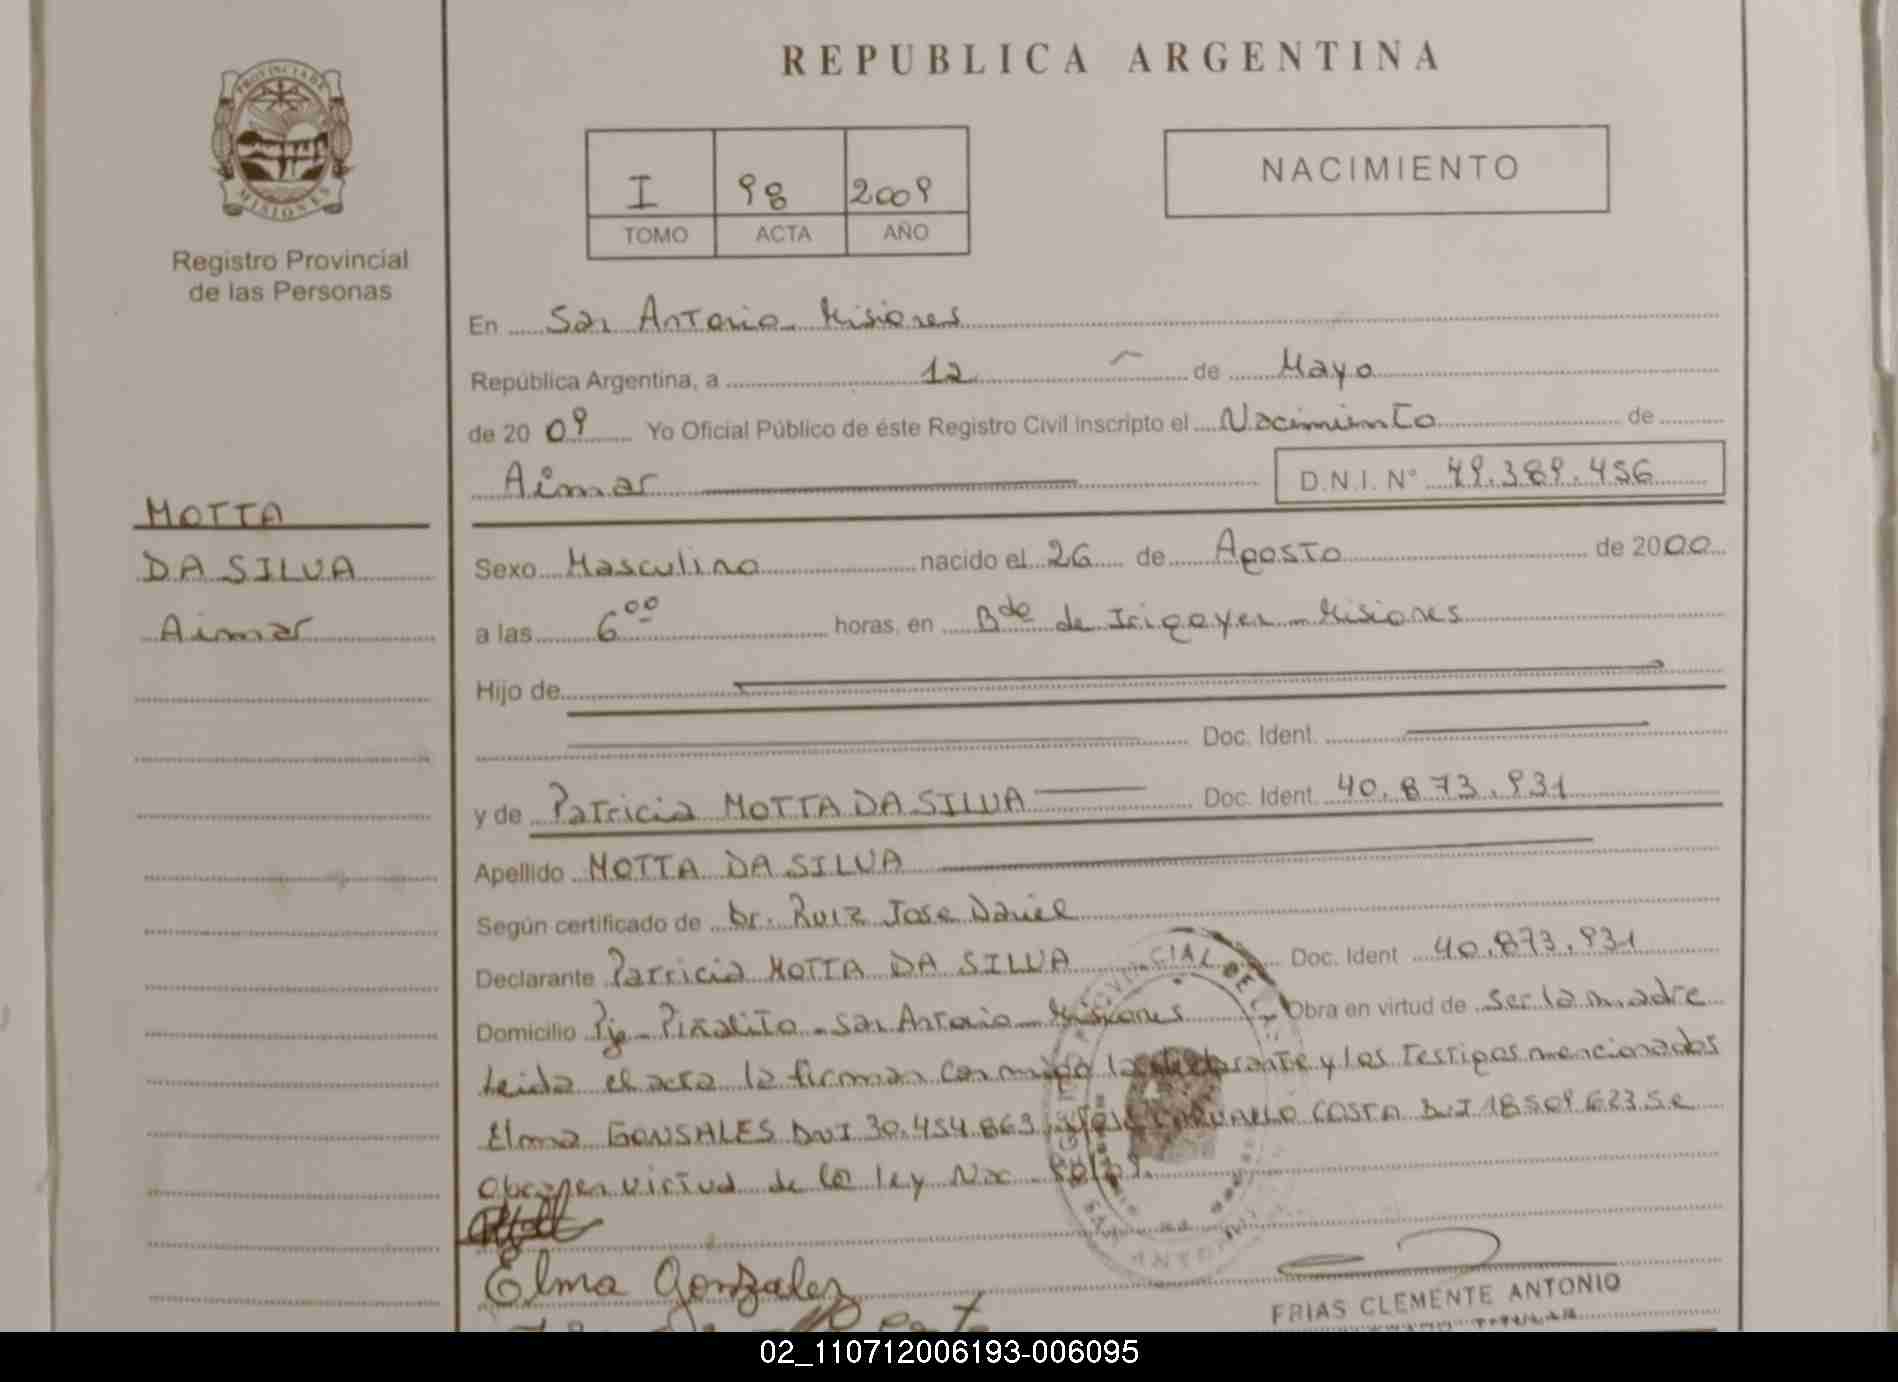 REPUBLICA ARGENTINA
PROVINCIA DE
MISIONES
Registro Provincial
de las Personas
I 98 2009
TOMO ACTA AÑO
NACIMIENTO
En San Antonio Misiones
República Argentina, a 12 de Mayo
de 2009 Yo Oficial Público de éste Registro Civil inscripto el Nacimiento de
Aimar D.N.I. Nº 49.389.456
MOTTA
DA SILVA
Aimar
Sexo Masculino nacido el 26 de Agosto de 2000
a las 6 00 horas, en Bdo de Irigoyen - Misiones
Hijo de
Doc. Ident.
y de Patricia MOTTA DA SILVA Doc. Ident. 40.873.931
Apellido MOTTA DA SILVA
Según certificado de Dr. Ruiz Jose Daniel
Declarante Patricia MOTTA DA SILVA Doc. Ident 40.873.931
Domicilio Pje Piñalito - San Antonio - Misiones Obra en virtud de ser la madre
Leida el acta la firman conmigo la declarante y los testigos mencionados
Elma GONSALES DNI 30.454.863 COSTA DNI 18509623 Se
obra en virtud de la ley
Elma Gonzalez
FRIAS CLEMENTE ANTONIO
02_110712006193-006095